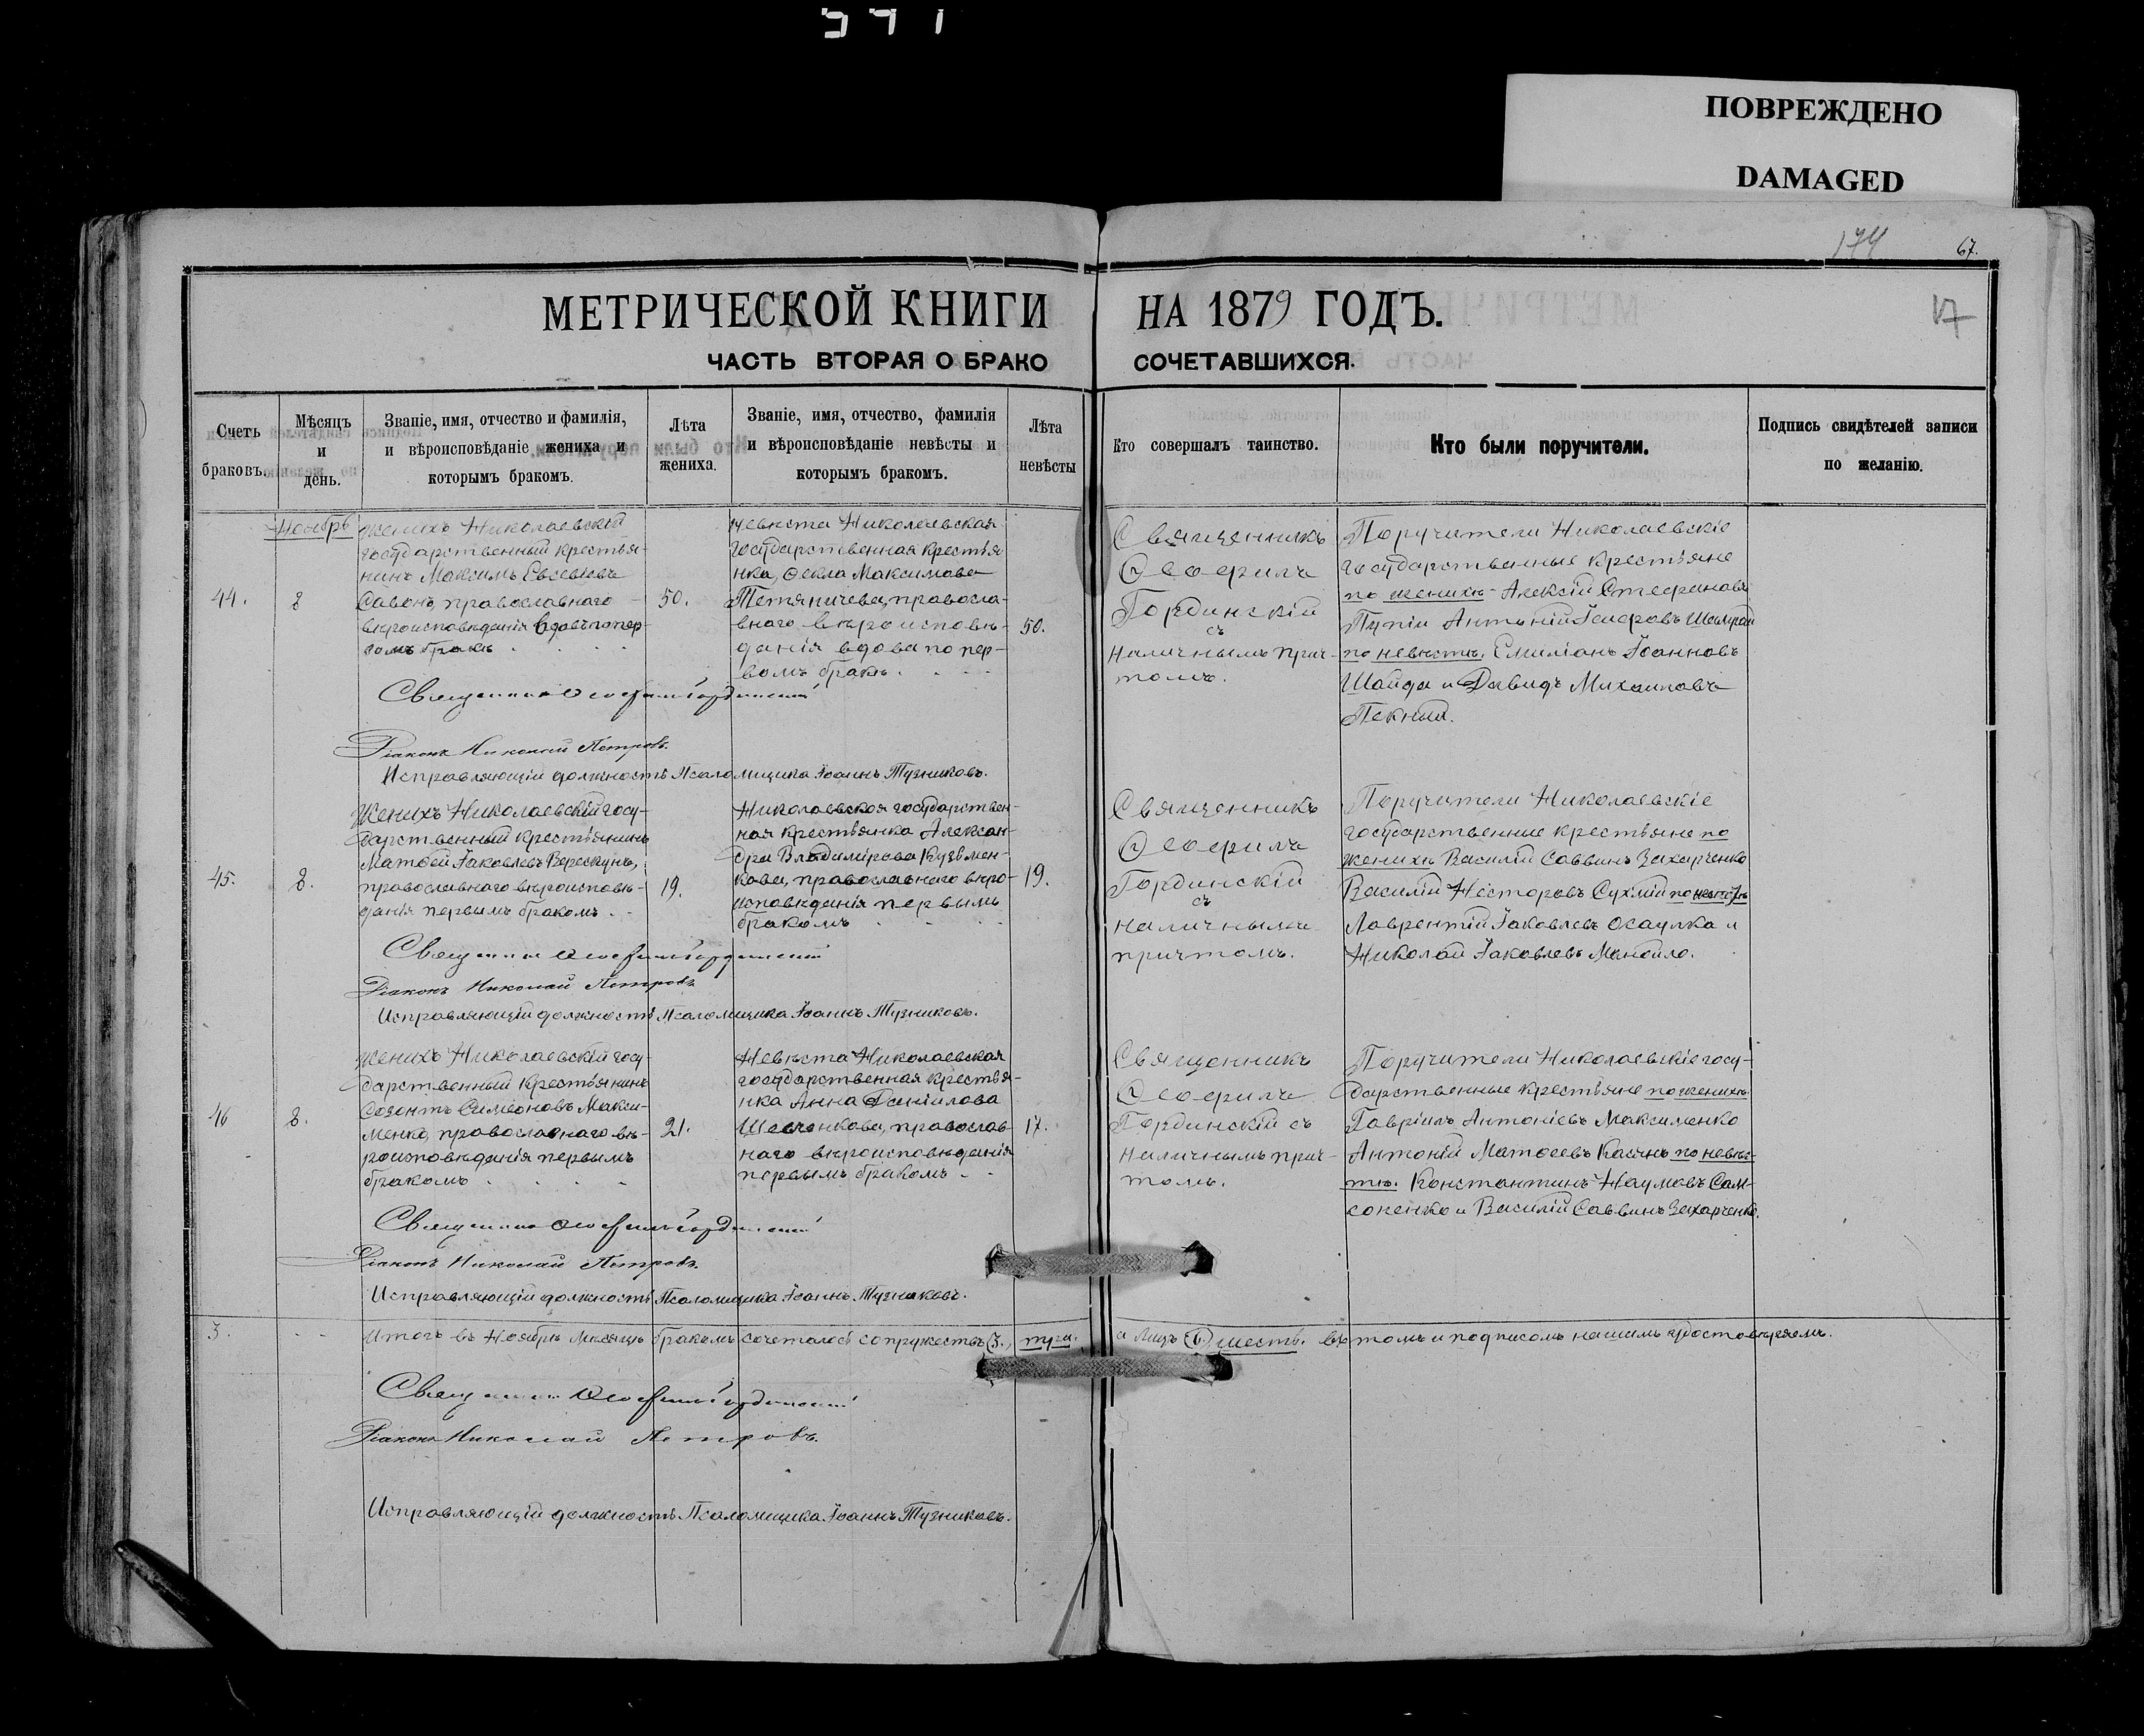 ПОВРЕЖДЕНО
DAMAGED
174
67.
МЕТРИЧЕСКОЙ КНИГИ НА 1879 ГОДЪ.
ЧАСТЬ ВТОРАЯ О БРАКОСОЧЕТАВШИХСЯ.
Счетъ
браковъ.
Мѣсяцъ
и
день.
Званіе, имя, отчество и фамилія,
и вѣроисповѣданіе жениха и
которымъ бракомъ.
Лѣта
жениха.
Званіе, имя, отчество, фамилія
и вѣроисповѣданіе невѣсты и
которымъ бракомъ.
Лѣта
невѣсты
Кто совершалъ таинство.
Кто были поручители.
Подпись свидѣтелей записи
по желанію.
Ноябрь
44.
8
Женихъ Николаевскій
государственный крестья-
нинъ Максимъ Евсевіевъ
православнаго
вѣроисповѣданія вдовъ по пер-
вомъ бракѣ
50.
Невѣста Николаевская
государственная крестья
нка, Ѳекла Максимова
православ-
наго вѣроисповѣ-
данія вдова по пер-
вомъ бракѣ.
50.
Священникъ
Ѳеофилъ
Гординскій
съ
наличнымъ прич-
томъ.
Поручители Николаевскіе
государственные крестьяне
по женихѣ Алексій Стефановъ
Антоній
по невѣстѣ, Емиліанъ Іоанновъ
Шайда и Давидъ Михаиловъ
Пекный.
Священникъ Ѳеофилъ Гординскій
Діаконъ Николай Петровъ.
Исправляющій должность Псаломщика Іоаннъ Тузниковъ.
45.
8.
Женихъ Николаевскій госу-
дарственный крестьянинъ
Матѳей Іаковлевъ Верескунъ,
православнаго вѣроисповѣ-
данія первымъ бракомъ.
19.
Николаевская государствен-
ная крестьянка Алексан-
дра Владимірова Кузьмен-
кова, православнаго вѣро-
исповѣданія первымъ
бракомъ
19.
Священникъ
Ѳеофилъ
Гординскій
съ
наличнымъ
причтомъ.
Поручители Николаевскіе
государственные крестьяне по
женихѣ Василій Саввинъ Захарченко
Василій Несторовъ Сухій по невѣстѣ
Лаврентій Іаковлевъ Осаулка и
Николай Іаковлевъ Манойло.
Священникъ Ѳеофилъ Гординскій
Діаконъ Николай Петровъ
Исправляющій должность Псаломщика Іоаннъ Тузниковъ.
46
8.
Женихъ Николаевскій госу-
дарственный крестьянинъ
Созонтъ Симеоновъ Макси-
менко, православнаго вѣ-
роисповѣданія первымъ
бракомъ
21.
Невѣста Николаевская
государственная крестья-
нка Анна Даніилова
Шевченкова, православ-
наго вѣроисповѣданія
первымъ бракомъ
17.
Священникъ
Ѳеофилъ
Гординскій съ
наличнымъ прич-
томъ.
Поручители Николаевскіе госу-
дарственные крестьяне по женихѣ
Гавріилъ Антоніевъ Максименко
Антоній Матѳеевъ Касянъ по невѣс-
тѣ. Константинъ Наумовъ Сам-
соненко и Василій Саввинъ Захарченко.
Священникъ Ѳеофилъ Гординскій
Діаконъ Николай Петровъ.
Исправляющій должность Псаломщика Іоаннъ Тузниковъ.
3.
Итого въ Ноябрѣ мѣсяцѣ бракомъ сочеталось супружествъ (3.) три. а лицъ (6.) шесть. въ томъ и подписомъ нашимъ удостовѣряемъ.
Священникъ Ѳеофилъ Гординскій
Діаконъ Николай Петровъ.
Исправляющій должность Псаломщика Іоаннъ Тузниковъ.